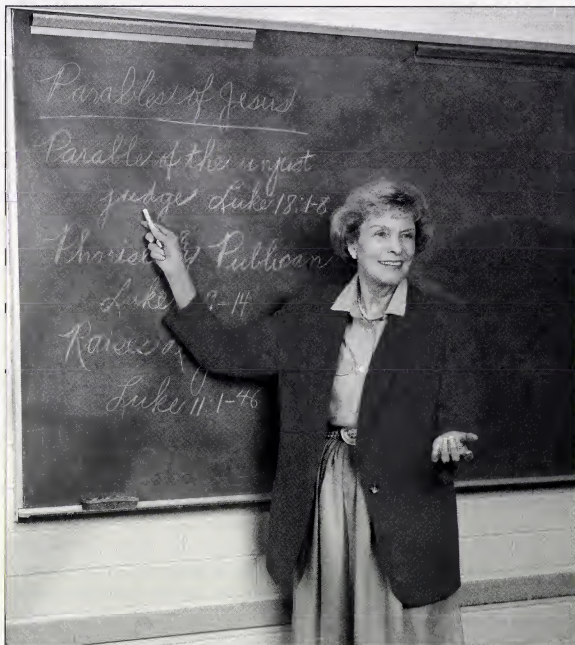 Parables of Jesus
Parable of the unjust
judge Luke 18:1-8
Publican
Luke 9-14
Luke 11:1-46